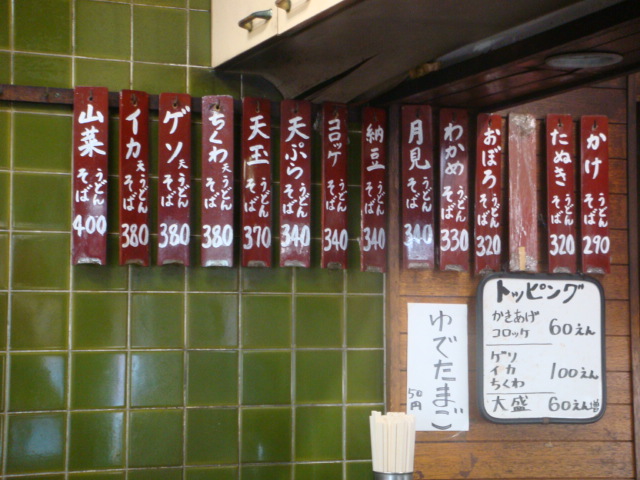 かけ うどん そば 290
たぬき うどん そば 320
おぼろ うどん そば 320
わかめ うどん そば 330
月見 うどん そば 340
納豆 うどん そば 340
コロッケ うどん そば 340
天ぷら うどん そば 340
天玉 うどん そば 370
ちくわ天 うどん そば 380
ゲソ天 うどん そば 380
イカ天 うどん そば 380
山菜 うどん そば 400
トッピング
かきあげ
コロッケ 60えん
ゲソ
イカ 100えん
ちくわ
大盛 60えん増
ゆでたまご
50円